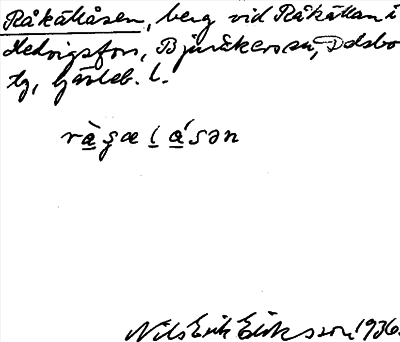 Råkällåsen, berg vid Råkällan i
Hedvigsfors, Bjuråkers sn, Delsbo
tg, Gävleb. l.
ràgælásən
Nils Erik Eriksson 1936.